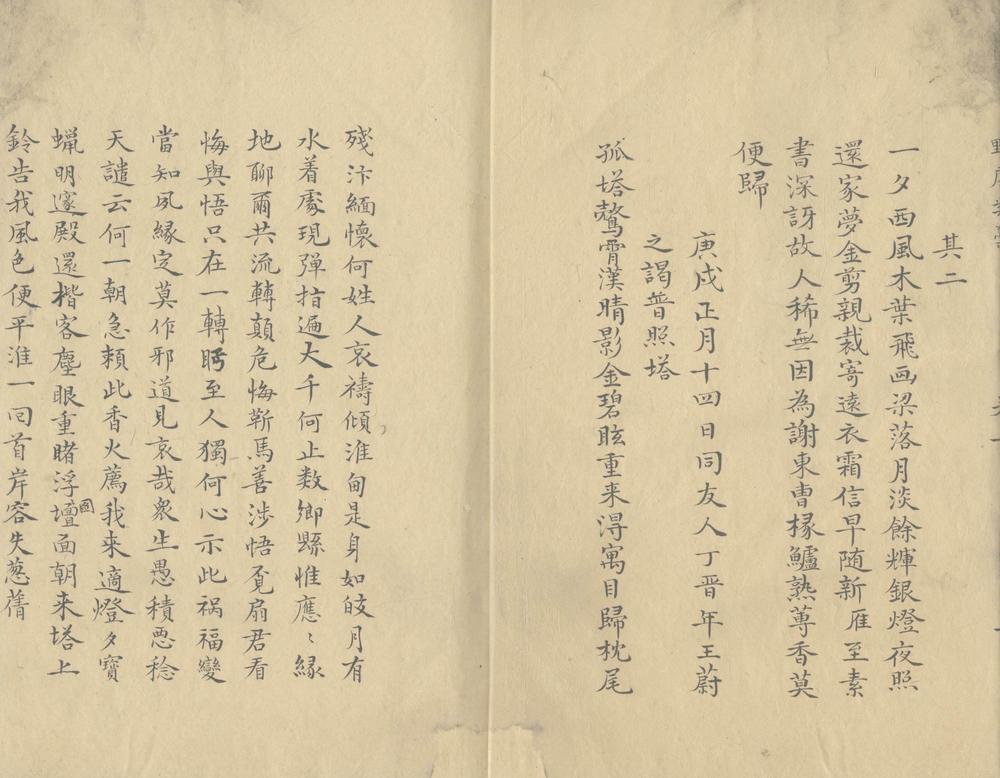 其二
一夕西風木葉飛画梁落月淡餘輝銀燈夜照
還家夢金剪親裁寄遠衣霜信早随新雁至素
書深訝故人稀無因為謝東曹掾鱸熟蓴香莫
便歸
庚戌正月十四日同友人丁晋年王蔚
之謁普照塔
孤塔驁霄漢晴影金碧眩重来淂寓目歸枕尾
殘汴緬懷何姓人哀禱傾淮甸是身如皎月有
水着處現弹指遍大千何止数鄉縣惟應〻緣
地聊爾共流轉顛危悔靳馬善涉悟覔扇君看
悔與悟只在一轉眄至人獨何心示此祸福變
當知夙緣定莫作邪道見哀哉衆生愚積惡稔
天譴云何一朝急頼此香火薦我来適燈夕寶
蝋明邃殿還揩客塵眼重睹浮壇圖面朝来塔上
鈴告我風色便平淮一囘首岸容失葱蒨